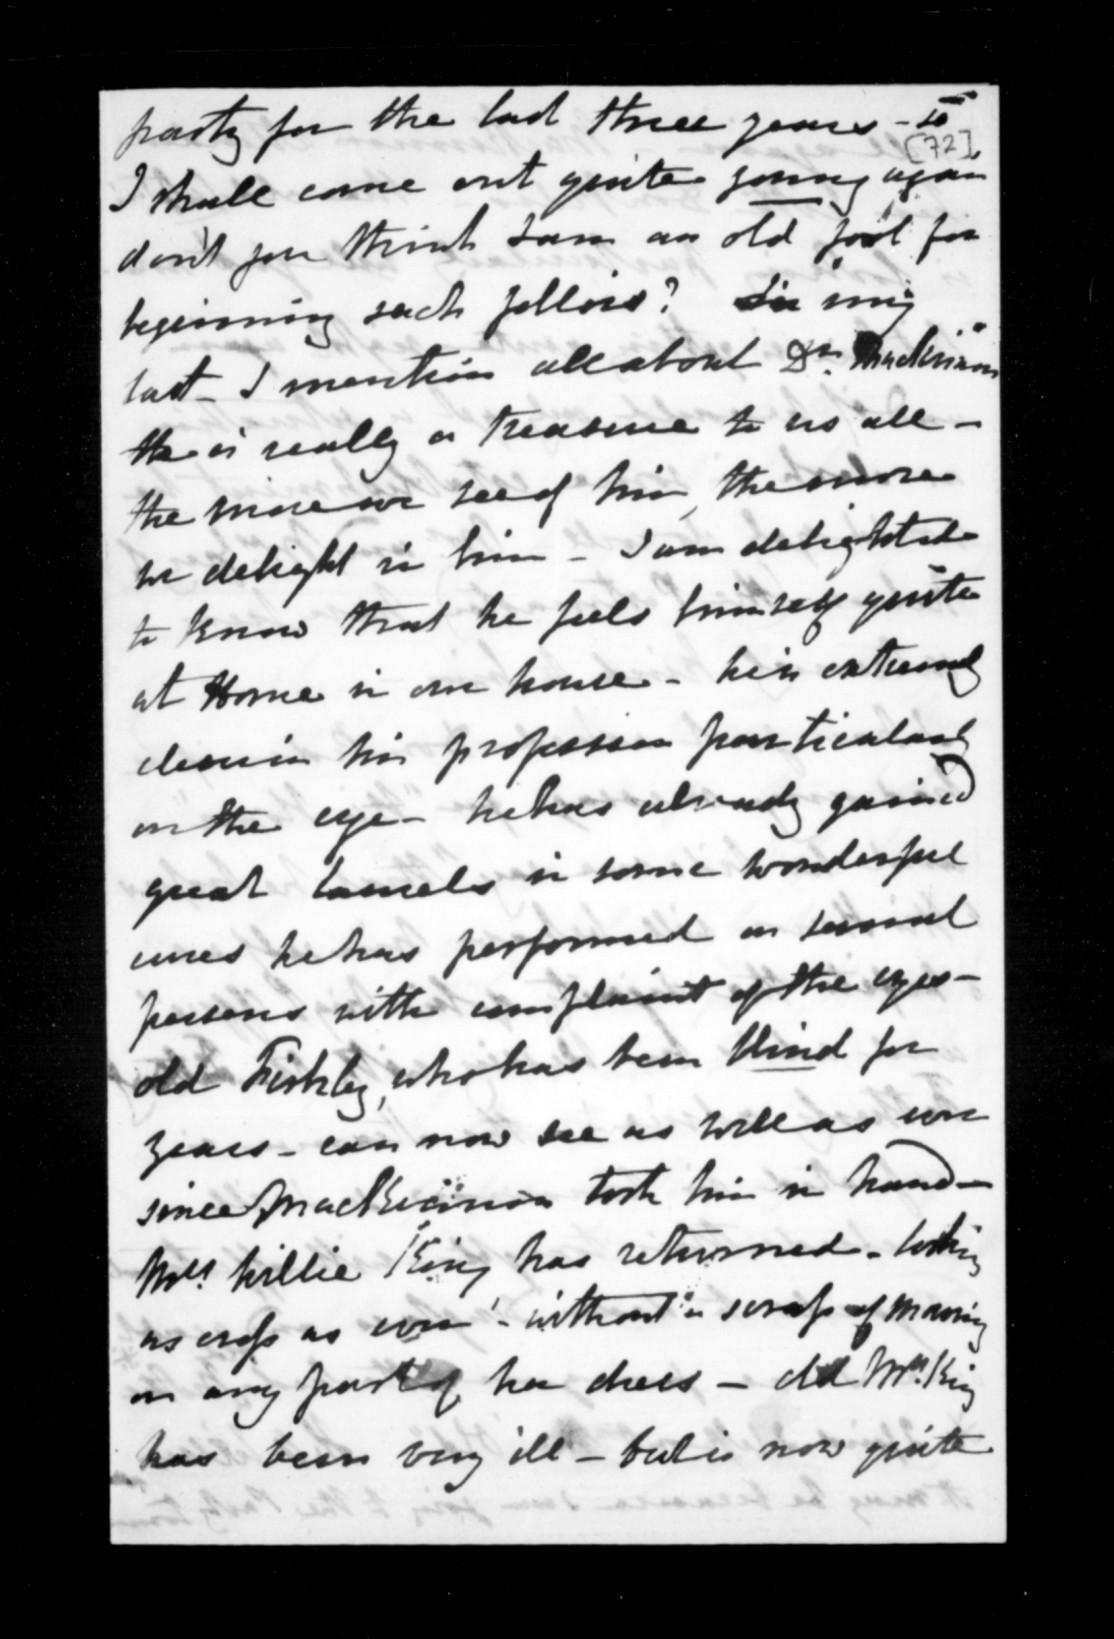 party for the last three years - so
[72]
I shall come out quite young again
don't you think I am an old fool for
beginning such follies? In my
last - I mention all about Dr. MacKinnon
He is really a treasure to us all -
the more we see of him, the more
we delight in him - I am delighted
to know that he feels himself quite
at Home in our house - he is extremely
clever in his profession particularly
on the eye - he has already gained
great laurels in some wonderful
cures he has performed on several
persons with complaint of the eyes -
old Firkley, who has been blind for
years - can now see as well as ever
since MacKinnon took him in hand -
Mrs. Willie King has returned - looking
as as ever - without a scrap of mourning
on any part of her dress - old Mrs. King
has been very ill - but is now quite